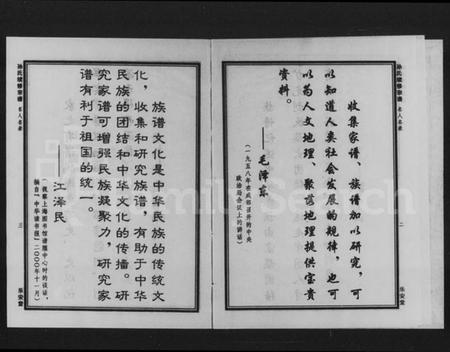 孙氏续修宗谱 名人名录
收集家谱、族谱加以研究，可
以知道人类社会发展的规律，也可
以为人文地理、聚落地理提供宝贵
资料。
——毛泽东
（一九五八年在成都召开的中央
政治局会议上的讲话）
二
乐安堂
族谱文化是中华民族的传统文
化，收集和研究族谱，有助于中华
民族的团结和中华文化的传播。研
究家谱可增强民族凝聚力，研究家
谱有利于祖国的统一。
江泽民
（视察上海图书馆谱牒中心时的谈话，
摘自《中华读书报》二〇〇〇年十一月）
孙氏续修宗谱 名人名录
三
乐安堂
FamilySearch